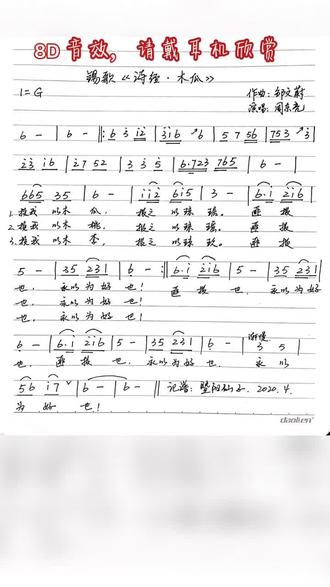 8D音效，请戴耳机欣赏
锡歌《诗经·木瓜》
1=G
作曲：邹文蔚
演唱：周东亮
6 - | 6 - ‖: 6 3 i 2 | 3 i 6 6 | 5 7 56 | 753 3 |
2 3 i6 | 27 52 | 3 3 5 | 6·723 765 | 6 - |
665 35 | 6 - | ii2 6i5 | 3 - | 6·i 2i6 |
1.投我 以木 瓜， 报之 以琼 琚。 匪 报
2.投我 以木 桃， 报之 以琼 瑶。 匪 报
3.投我 以木 李， 报之 以琼 玖。 匪 报
5 - | 35 231 | 6 - :‖ 6·i 2i6 | 5 - | 35 231 |
也， 永以为好 也！ 匪 报 也， 永以为好
也， 永以为好 也！
也， 永以为好 也！
6 - | 6·i 2i6 | 5 - | 35 231 | 6 - | 3 5 |
也， 匪 报 也， 永以为好 也， 永 以
56 i7 | 6 - | 6 - ‖ 记谱：暨阳仙子. 2020.4.
为 好 也！
daolien